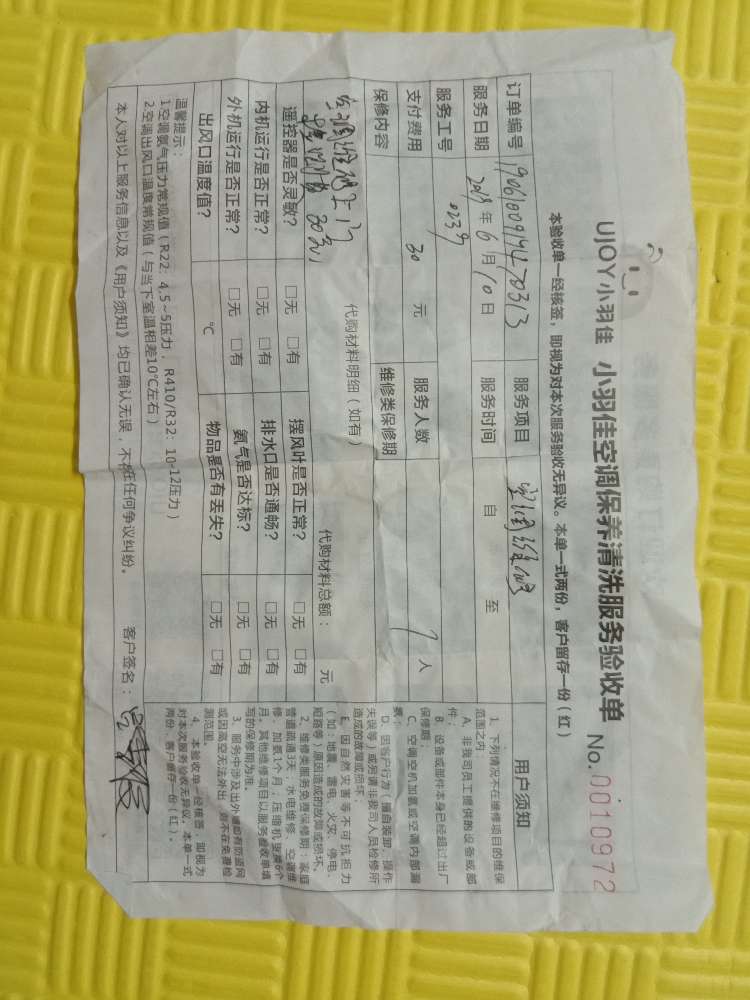 UJOY小羽佳 小羽佳空调保养清洗服务验收单 No.0010972
本验收单一经核签，即视为对本次服务验收无异议。本单一式两份，客户留存一份（红）
订单编号 服务项目
服务日期 2019年6月10日 服务时间 自 至
服务工号 0239
支付费用 30 元 服务人数 1 人
保修内容 维修类保修期
代购材料明细（如有） 代购材料总额： 元
遥控器是否灵敏？ □无 □有 摆风叶是否正常？ □无 □有
内机运行是否正常？ □无 □有 排水口是否通畅？ □无 □有
外机运行是否正常？ □无 □有 氨气是否达标？ □无 □有
出风口温度值？ ℃ 物品是否有丢失？ □无 □有
温馨提示：
1空调氨气压力常规值（R22：4.5~5压力，R410/R32：10-12压力）
2空调出风口温度常规值（与当下室温相差10℃左右）
本人对以上服务信息以及《用户须知》均已确认无误，不存在任何争议纠纷。 客户签名：
用户须知
1、下列情况不在维修项目的维保
范围之内：
A、非我司员工提供的设备或部
件；
B、设备或部件本身已经超过出厂
保修期；
C、空调空机加氨或空调内部漏
氨；
D、因客户行为（擅自装卸、操作
失误等）或另请非我司人员检修所
造成的故障或损坏；
E、因自然灾害等不可抗拒力
（如：地震、雷电、火灾、停电、
短路等）原因造成的故障或损坏。
2、维修类服务免费保修期：家庭
管道疏通3天；水电维修、空调维
修、加氨1个月；压缩机
月。其他维修项目以服务验收单填
写的保修期为准。
3、服务中涉及出外
或因高空无法外出，则不在免费检
测范围。
4、本验收单一经核签，即视为
对本次服务验收无异议。本单一式
两份，客户留存一份（红）。